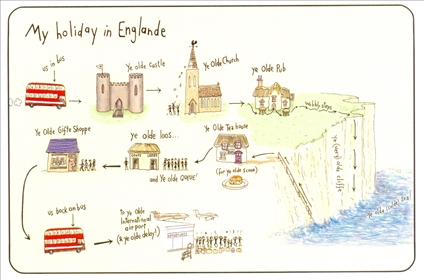 My holiday in Englande
us in bus
ye olde castle
Ye Olde Church
ye Olde Pub
wobbly steps
ye (very) olde cliffs
ye olde (cold) sea
Ye Olde Tea house
(for ye olde scone)
ye olde loos...
and Ye Olde QUEUE!
Ye Olde Gifte Shoppe
us back on bus
To ye Olde
International
airport
(& ye olde delay!)
DEPARTURES